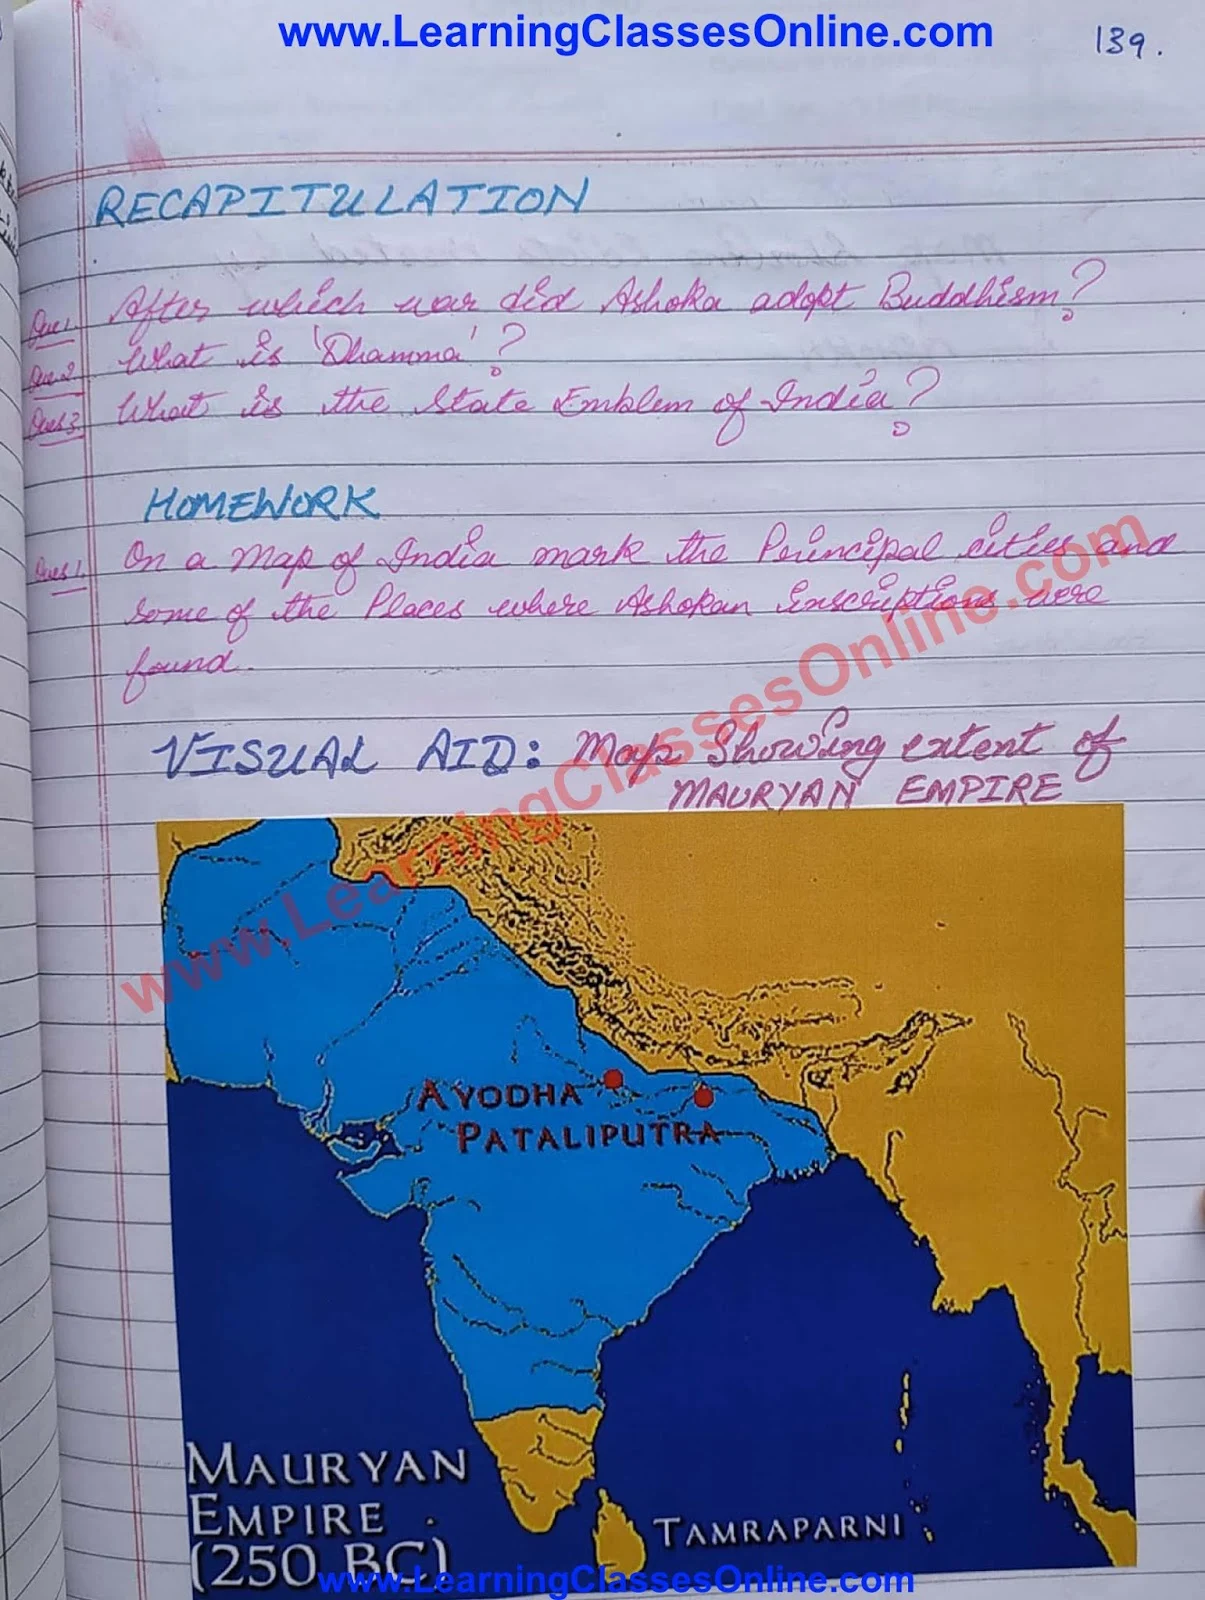 www.LearningClassesOnline.com
139.
RECAPITULATION
Ques1. After which war did Ashoka adopt Buddhism?
Ques2. What is 'Dhamma'?
Ques3. What is the State Emblem of India?
HOMEWORK
Ques1. On a Map of India mark the Principal cities and
some of the Places where Ashokan inscriptions were
found.
www.LearningClassesOnline.com
VISUAL AID: Map Showing extent of
MAURYAN EMPIRE
AYODHA
PATALIPUTRA
MAURYAN
EMPIRE
(250 BC)
TAMRAPARNI
www.LearningClassesOnline.com